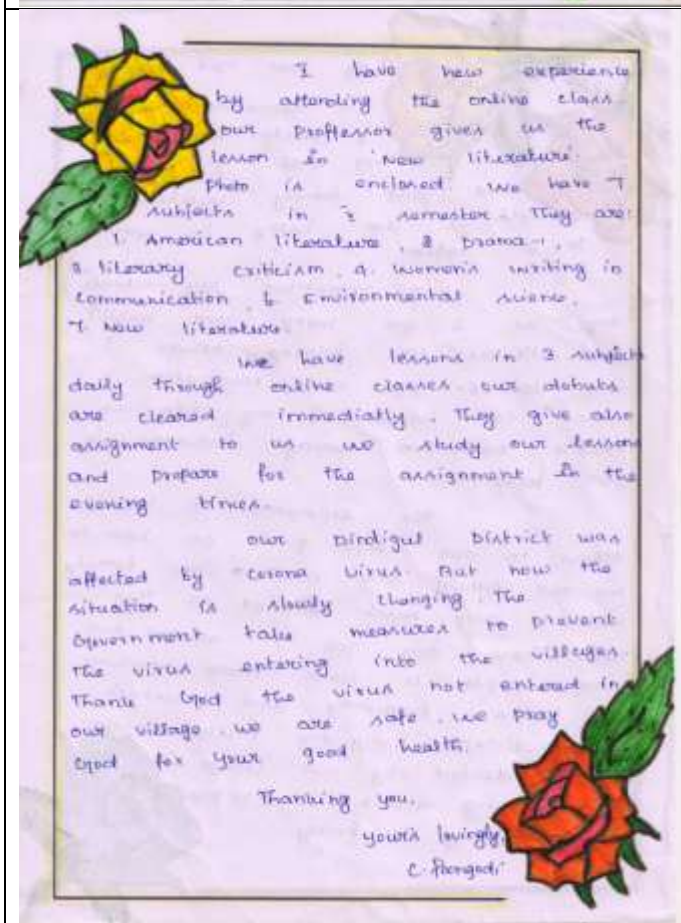 I have new experience
by attending the online class.
our proffessor gives us the
lesson in 'New literature'.
photo is enclosed. we have 7
subjects in semester. They are:
1. American literature, 2 Drama-1,
3 literary criticism, 4. women's writing in
communication, 6 Environmental science,
7. New literature.
we have lessons in 3 subjects
daily through online classes our
are cleared immediatly. They give also
assignment to us we study our lessons
and prepare for the assignment in the
evening times.
our Dindigul District was
affected by corona virus. But now the
situation is slowly changing. The
Government take measures to prevent
the virus entering into the villages.
Thank God the virus not entered in
our village. we are safe. we pray
God for your good health.
Thanking you,
your's lovingly,